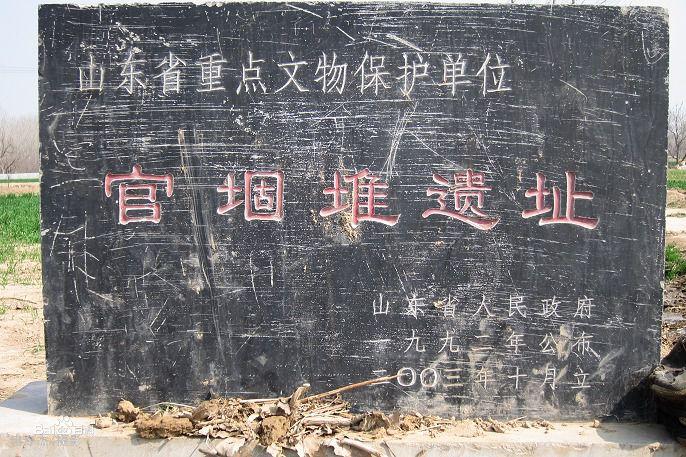 山东省重点文物保护单位
官堌堆遗址
山东省人民政府
一九九二年公布
二〇〇三年十月立
Baidu百科